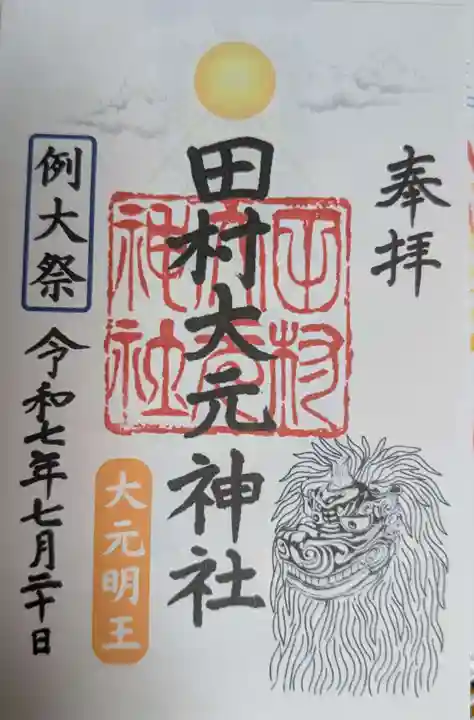 奉拝
田村大元神社
田村大元神社
例大祭
令和七年七月二十日
大元明王